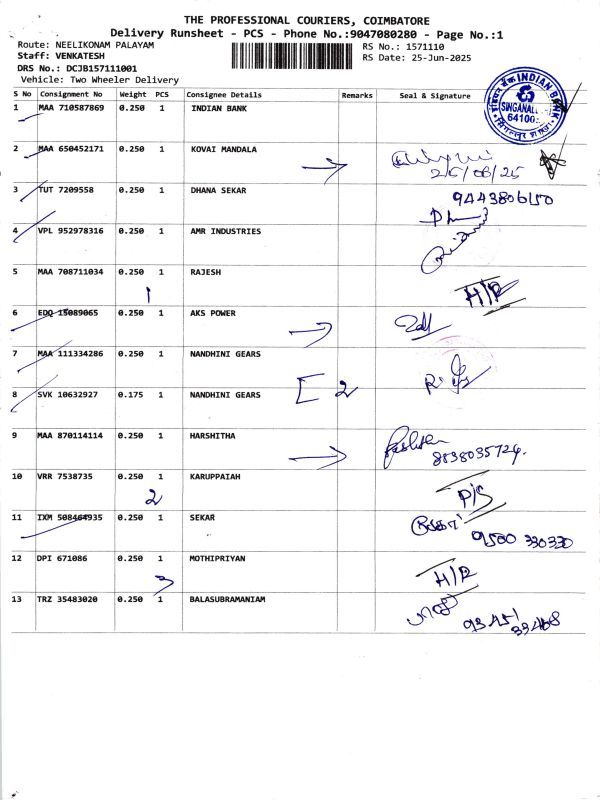 THE PROFESSIONAL COURIERS, COIMBATORE
Delivery Runsheet - PCS - Phone No.:9047080280 - Page No.:1
Route: NEELIKONAM PALAYAM RS No.: 1571110
Staff: VENKATESH RS Date: 25-Jun-2025
DRS No.: DCJB157111001
Vehicle: Two Wheeler Delivery
S No Consignment No Weight PCS Consignee Details Remarks Seal & Signature
INDIAN BANK
SINGANALL
64100
1 MAA 710587869 0.250 1 INDIAN BANK
2 MAA 650452171 0.250 1 KOVAI MANDALA
25/06/25
3 TUT 7209558 0.250 1 DHANA SEKAR 9443806150
4 VPL 952978316 0.250 1 AMR INDUSTRIES
5 MAA 708711034 0.250 1 RAJESH
1 H/R
6 EDQ 15089065 0.250 1 AKS POWER
7 MAA 111334286 0.250 1 NANDHINI GEARS
2
8 SVK 10632927 0.175 1 NANDHINI GEARS
9 MAA 870114114 0.250 1 HARSHITHA
8838035724.
10 VRR 7538735 0.250 1 KARUPPAIAH
2 P/S
11 IXM 508464935 0.250 1 SEKAR
9500 330330
12 DPI 671086 0.250 1 MOTHIPRIYAN
3 H/R
13 TRZ 35483020 0.250 1 BALASUBRAMANIAM
93451
33468